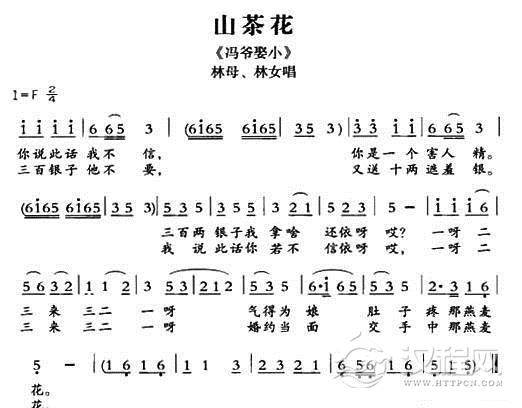 山茶花
《冯爷娶小》
林母、林女唱
1=F 2/4
i i i i | 6 65 3 | (6i65 6i65 | 35 3) | 3 3 i i | 6 65 3 |
你说此话 我不 信, 你是一个 害人 精。
三百银子 他不 要, 又送十两 遮羞 银。
(6i65 6i65 | 35 3) | 5 3 5 | 5 3 5 | 3 21 | 5 3 5 2 | 5 - | i i i6 |
三百两 银子我 拿啥 还依呀 哎? 一呀二
我说 此话你 若不 信依呀 哎, 一呀二
5 6 3 2 | 1 1 2 | 3 2 3 5 | 5 3 5 | 6·i 65 | 3 5 | 2·3 2 1 6 |
三来 三二 一呀 气得为 娘 肚子 疼那燕麦
三来 三二 一呀 婚约当 面 交手 中那燕麦
5 - | (1 6 1 6 | 1 1 3 | 2 3 2 1 | 6 5 1 6 | 5 -) ‖
花。
花。
汉程网
HTTPCN.COM